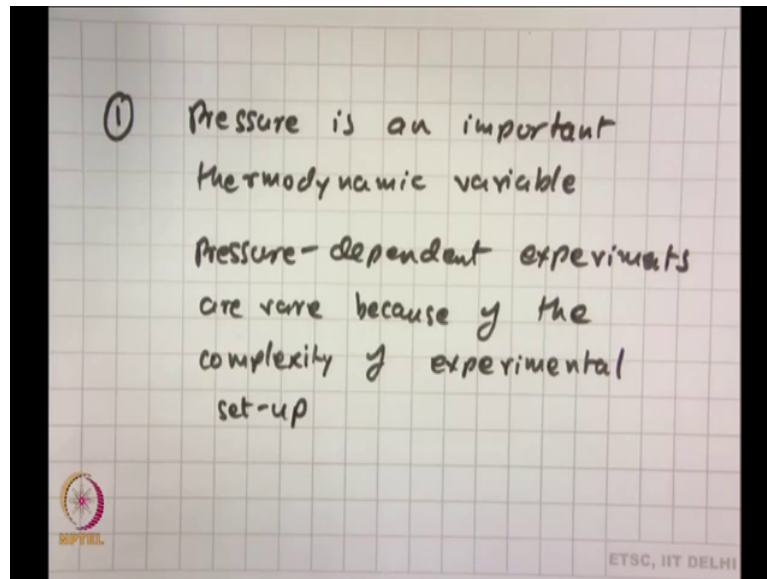 ① Pressure is an important
thermodynamic variable
Pressure-dependent experiments
are rare because of the
complexity of experimental
set-up
NPTEL
ETSC, IIT DELHI